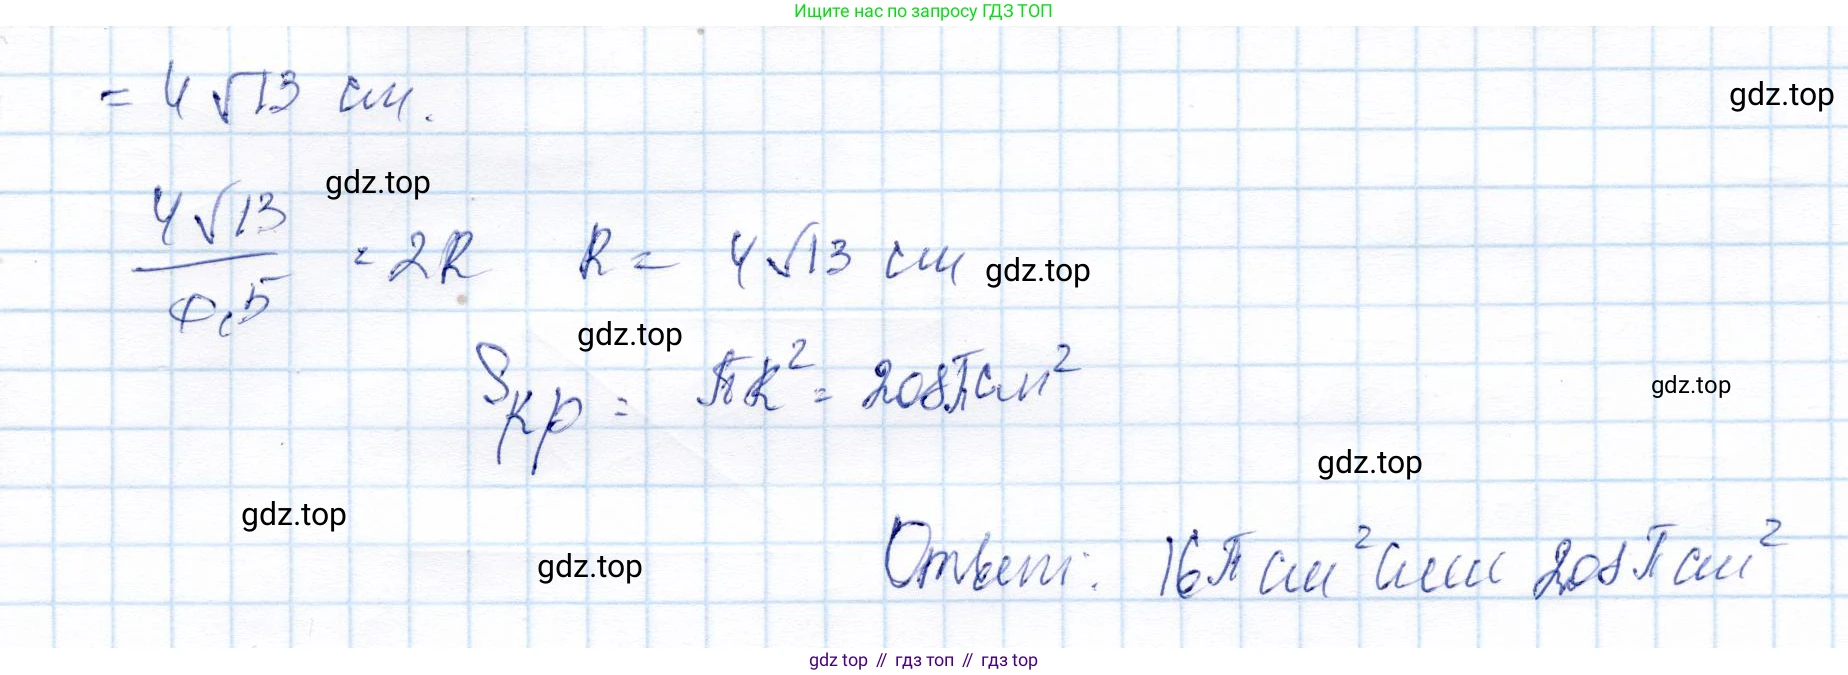 Ищите нас по запросу ГДЗ ТОП
= 4√13 см.
gdz.top
gdz.top
4√13/0,5 = 2R R = 4√13 см
gdz.top
gdz.top
Sкр = πR² = 208π см²
gdz.top
gdz.top
gdz.top
gdz.top
Ответ: 16π см² или 208π см²
gdz top // гдз топ // гдз top